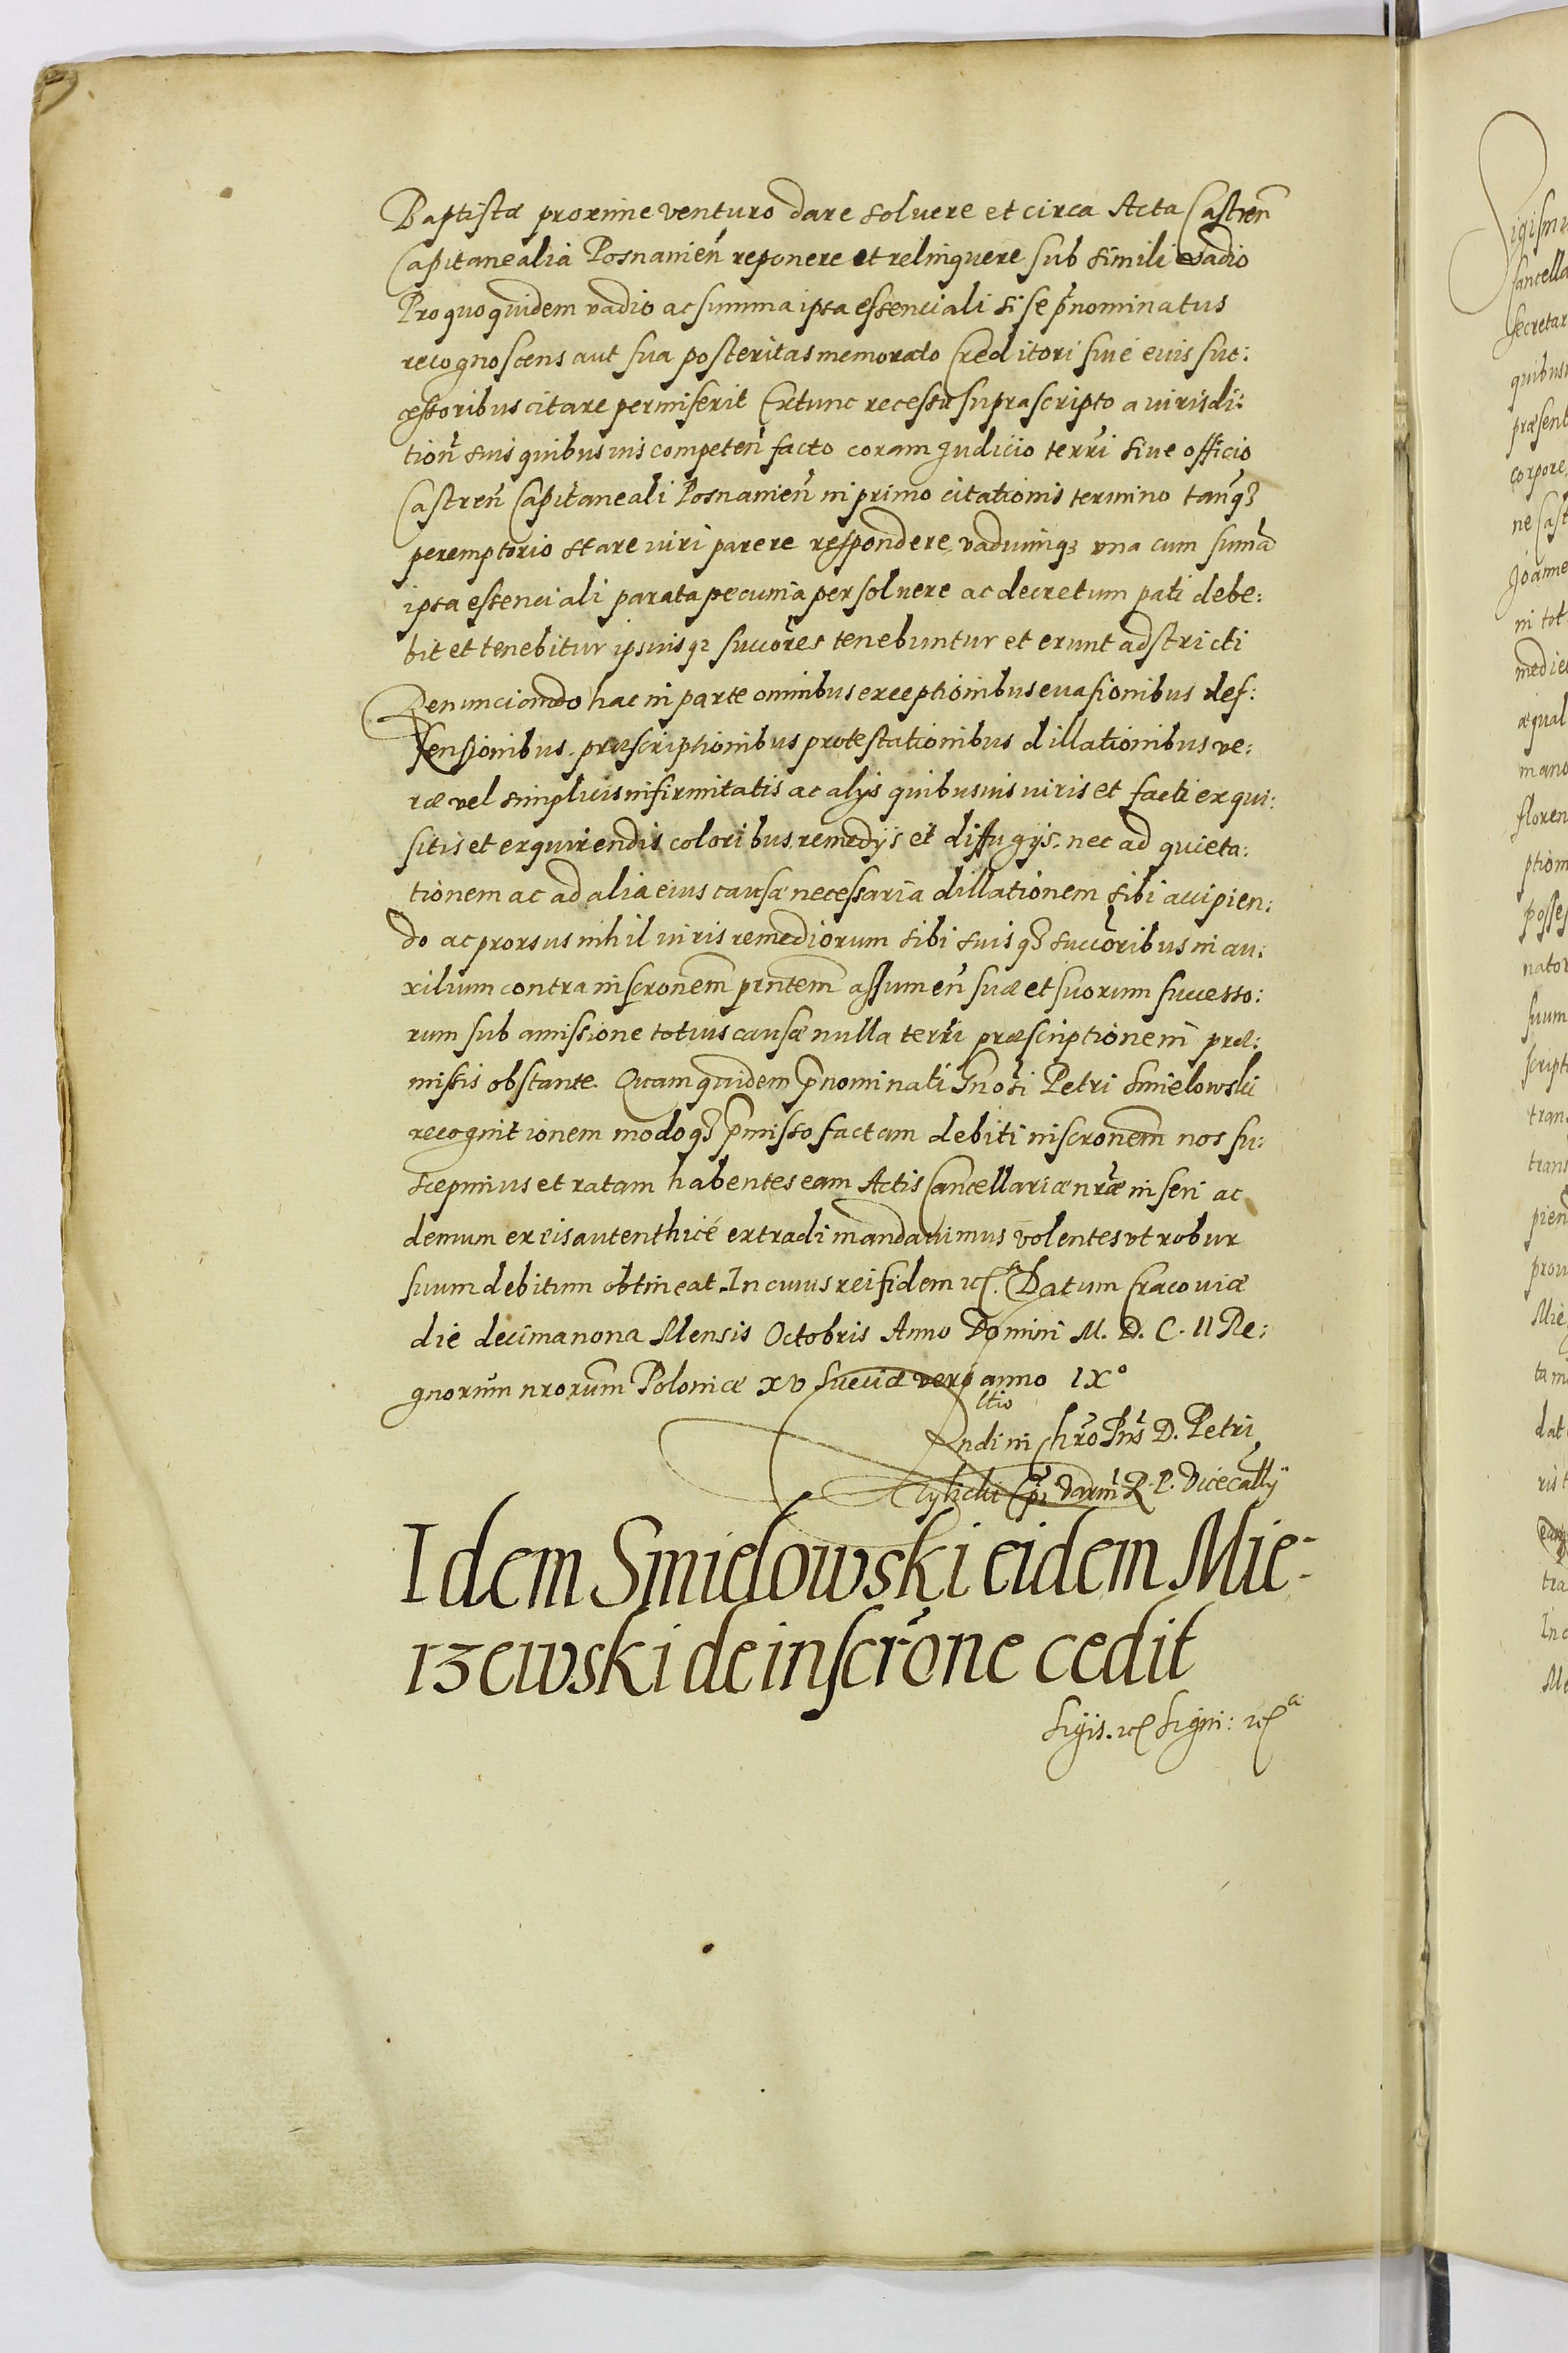 Baptistæ proxime venturo dare soluere et circa Acta Castreñ
Capitanealia Posnanień reponere et relinquere sub simili vadio
Pro quo quidem vadio ac summa ipsa essenciali si se p̃nominatus
recognoscens aut sua posteritas memorato Creditori siue eius suc:
cessoribus citare permiserit Extunc recessu suprascripto a iurisdi:
tioñ suis quibusuis competeñ facto coram Judicio terrĩ siue officio
Castreñ Capitaneali Posnanień in primo citationis termino tanq̃
peremptorio stare iuri parere respondere, vadiumq₃ vna cum sum̃a
ipsa essenciali parata pecunia persoluere ac decretum pati debe:
bit et tenebitur ipsiusq₃ succõres tenebuntur et erunt adstricti
Renunciando hac in parte omnibus exceptionibus euasionibus def:
fensionibus. præscriptionibus protestationibus dillationibus ve:
ræ vel simplicis infirmitatis ac alijs quibusuis iuris et facti exqui:
sitis et exquirendis coloribus, remedijs et diffugijs. nec ad quieta:
tionem ac ad alia eius causæ necessaria dillationem sibi accipien:
do ac prorsus nihil iuris remediorum sibi suisq₃ succõribus in au:
xilium contra inscr̃onem pr̃ntem assumeñ suæ et suorum successo:
rum sub amissione totius causæ nulla terrĩ præscriptione in præ:
missis obstante. Quam quidem p̃nominati Gnosĩ Petri Smielowski
recognitionem modoq₃ p̃misso factam debiti inscr̃onem nos su:
scepimus et ratam habentes eam Actis Cancellariæ nr̃æ inseri ac
demum ex eis autenthicé extradi mandauimus volentes vt robur
suum debitum obtineat. In cuius rei fidem etc. Datum Cracouiæ
die decimanona Mensis Octobris Anno Domini M. D. C. II Re:
gnorum nrorum Poloniæ XV Sueciæ vero anno IX°
ltio
Rndi in Chr̃o Pñs D. Petri
Tylicki Epĩ Varm̃ R. P. Vicecañllÿ
Idem Smielowski eidem Mie-
rzewski de inscr̃one cedit
Sigis. etc Signi: etcᵃ